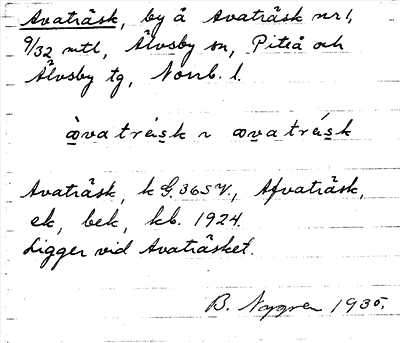 Avaträsk, by å Avaträsk nr 1,
9/32 mtl, Älvsby sn, Piteå och
Älvsby tg, Norrb. l.
àvatrǻsk ~ avatrásk
Avaträsk, k G. 36SV, Afvaträsk,
ek, bek, kb. 1924.
Ligger vid Avaträsket.
B. Nygren 1935.